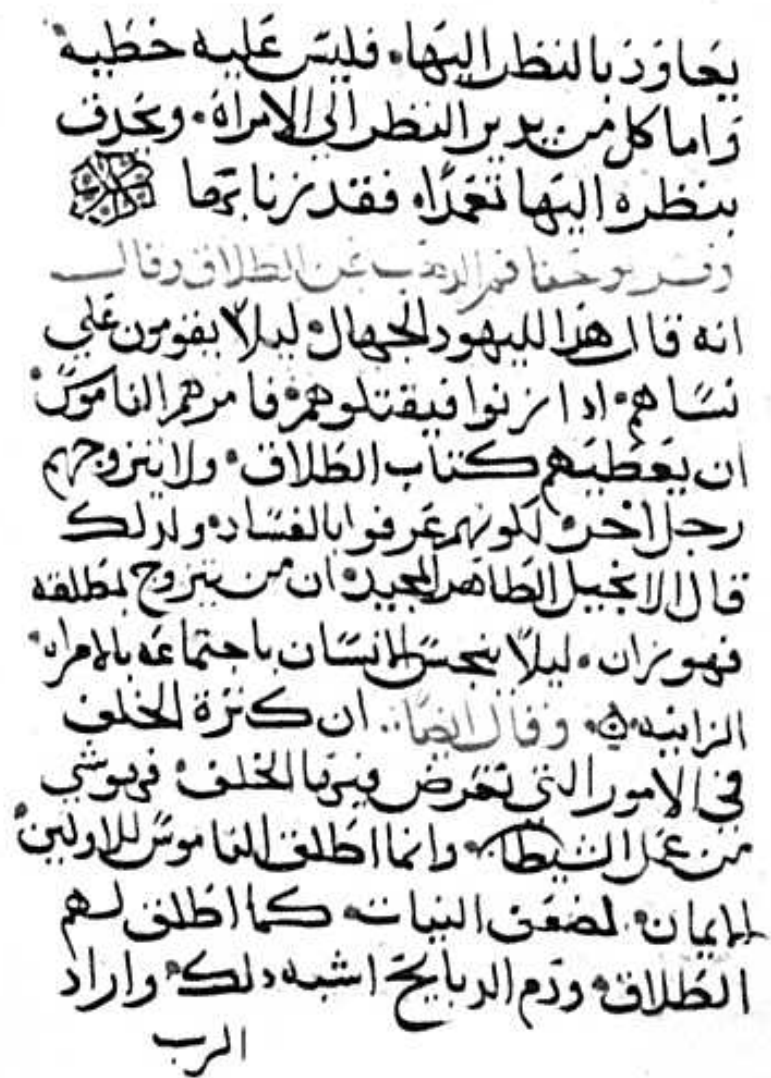 يعاود بالنظر اليها. فليس عليه خطيه
واما كل من يدير النظر الي الامراة. ويحدف
بنظره اليها تعمدًا. فقد زنا بها
وفسر يوحنا فم الدهب عن الطلاق وقال
انه قال هدا لليهود الجهال. ليلا يقومون علي
نساهم. ادا زنوا فيقتلوهم. فامرهم الناموس
ان يعطيهم كتاب الطلاق. ولا يتزوجهم
رجل اخر. لكونهم عرفوا بالفساد. ولدلك
قال الانجيل الطاهر المجيد. ان من يتزوج بمطلقه
فهو زان. ليلا ينجس الانسان باجتماعه بالامراه
الزانيه. وقال ايضًا. ان كترة الخلف
في الامور التي تعرض فيها الخلف. فهو شي
من عمل الشيطان. وانما اطلق الناموس للاولين
الايمان. لضعف النيات. كما اطلق لهم
الطلاق. ودم الدبايح اشبه دلك. واراد
الرب